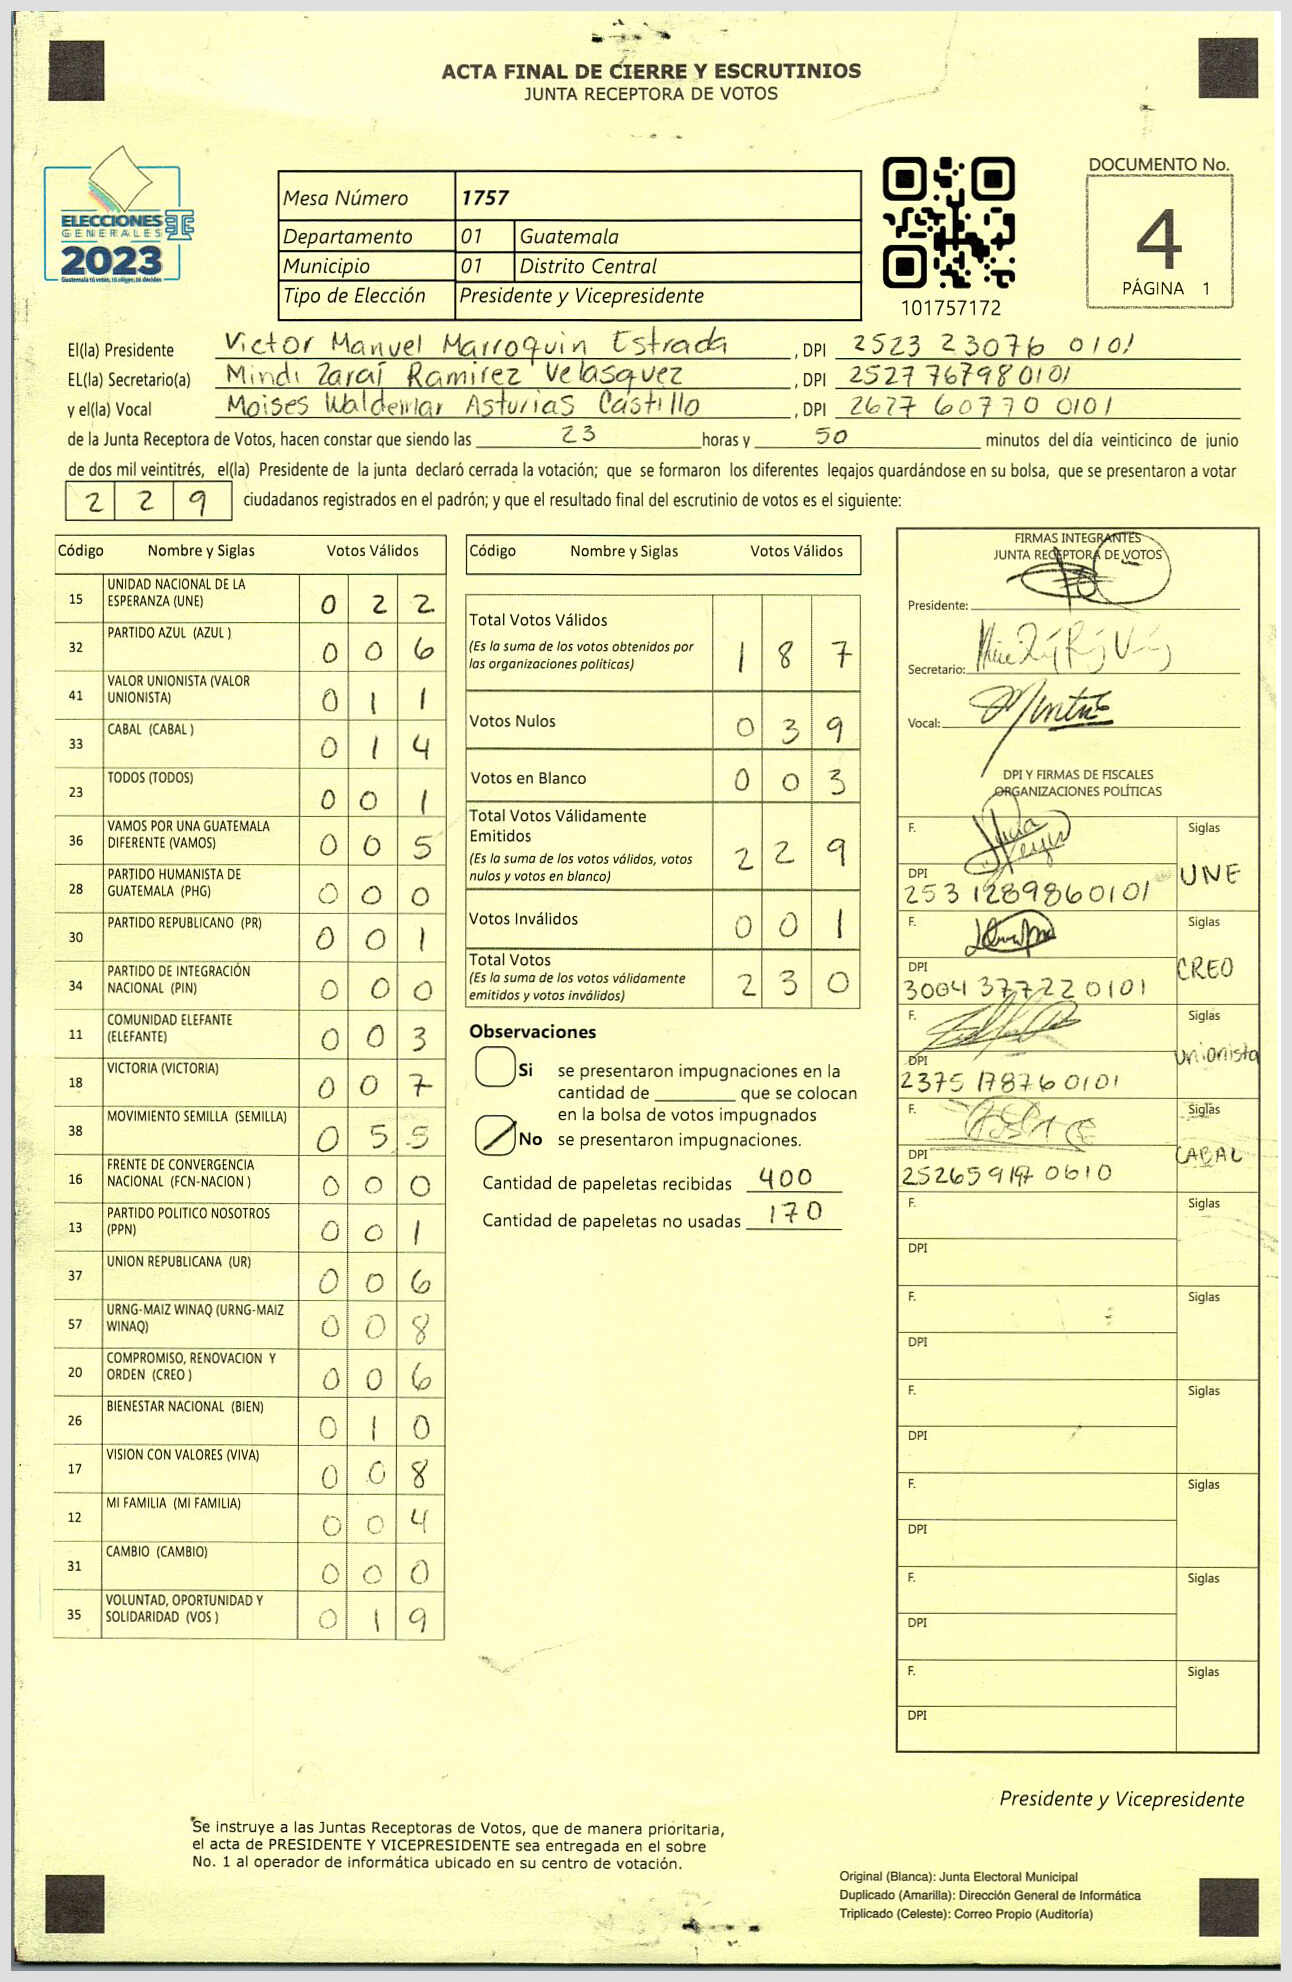 ACTA FINAL DE CIERRE Y ESCRUTINIOS
JUNTA RECEPTORA DE VOTOS
ELECCIONES
GENERALES
2023
Guatemala tú votas, tú eliges, tú decides
Mesa Número 1757
Departamento 01 Guatemala
Municipio 01 Distrito Central
Tipo de Elección Presidente y Vicepresidente
101757172
DOCUMENTO No.
4
PÁGINA 1
El(la) Presidente Victor Manuel Marroquin Estrada , DPI 2523 23076 0101
EL(la) Secretario(a) Mindi Zaraí Ramirez Velasquez , DPI 2527 76798 0101
y el(la) Vocal Moises Waldemar Asturias Castillo , DPI 2627 60770 0101
de la Junta Receptora de Votos, hacen constar que siendo las 23 horas y 50 minutos del día veinticinco de junio
de dos mil veintitrés, el(la) Presidente de la junta declaró cerrada la votación; que se formaron los diferentes legajos guardándose en su bolsa, que se presentaron a votar
2 2 9 ciudadanos registrados en el padrón; y que el resultado final del escrutinio de votos es el siguiente:
Código Nombre y Siglas Votos Válidos
15 UNIDAD NACIONAL DE LA
ESPERANZA (UNE) 0 2 2
32 PARTIDO AZUL (AZUL ) 0 0 6
41 VALOR UNIONISTA (VALOR
UNIONISTA) 0 1 1
33 CABAL (CABAL ) 0 1 4
23 TODOS (TODOS) 0 0 1
36 VAMOS POR UNA GUATEMALA
DIFERENTE (VAMOS) 0 0 5
28 PARTIDO HUMANISTA DE
GUATEMALA (PHG) 0 0 0
30 PARTIDO REPUBLICANO (PR) 0 0 1
34 PARTIDO DE INTEGRACIÓN
NACIONAL (PIN) 0 0 0
11 COMUNIDAD ELEFANTE
(ELEFANTE) 0 0 3
18 VICTORIA (VICTORIA) 0 0 7
38 MOVIMIENTO SEMILLA (SEMILLA) 0 5 5
16 FRENTE DE CONVERGENCIA
NACIONAL (FCN-NACION ) 0 0 0
13 PARTIDO POLITICO NOSOTROS
(PPN) 0 0 1
37 UNION REPUBLICANA (UR) 0 0 6
57 URNG-MAIZ WINAQ (URNG-MAIZ
WINAQ) 0 0 8
20 COMPROMISO, RENOVACION Y
ORDEN (CREO ) 0 0 6
26 BIENESTAR NACIONAL (BIEN) 0 1 0
17 VISION CON VALORES (VIVA) 0 0 8
12 MI FAMILIA (MI FAMILIA) 0 0 4
31 CAMBIO (CAMBIO) 0 0 0
35 VOLUNTAD, OPORTUNIDAD Y
SOLIDARIDAD (VOS ) 0 1 9
Código Nombre y Siglas Votos Válidos
Total Votos Válidos
(Es la suma de los votos obtenidos por
las organizaciones políticas) 1 8 7
Votos Nulos 0 3 9
Votos en Blanco 0 0 3
Total Votos Válidamente
Emitidos
(Es la suma de los votos válidos, votos
nulos y votos en blanco) 2 2 9
Votos Inválidos 0 0 1
Total Votos
(Es la suma de los votos válidamente
emitidos y votos inválidos) 2 3 0
Observaciones
Si se presentaron impugnaciones en la
cantidad de que se colocan
en la bolsa de votos impugnados
No se presentaron impugnaciones.
Cantidad de papeletas recibidas 400
Cantidad de papeletas no usadas 170
FIRMAS INTEGRANTES
JUNTA RECEPTORA DE VOTOS
Presidente:
Secretario:
Vocal:
DPI Y FIRMAS DE FISCALES
ORGANIZACIONES POLÍTICAS
F. Siglas
UNE
DPI
253 1289860101
F. Siglas
CREO
DPI
3004 377220101
F. Siglas
Unionista
DPI
2375 178760101
F. Siglas
CABAL
DPI
0610
F. Siglas
DPI
F. Siglas
DPI
F. Siglas
DPI
F. Siglas
DPI
F. Siglas
DPI
F. Siglas
DPI
Presidente y Vicepresidente
Se instruye a las Juntas Receptoras de Votos, que de manera prioritaria,
el acta de PRESIDENTE Y VICEPRESIDENTE sea entregada en el sobre
No. 1 al operador de informática ubicado en su centro de votación.
Original (Blanca): Junta Electoral Municipal
Duplicado (Amarilla): Dirección General de Informática
Triplicado (Celeste): Correo Propio (Auditoría)